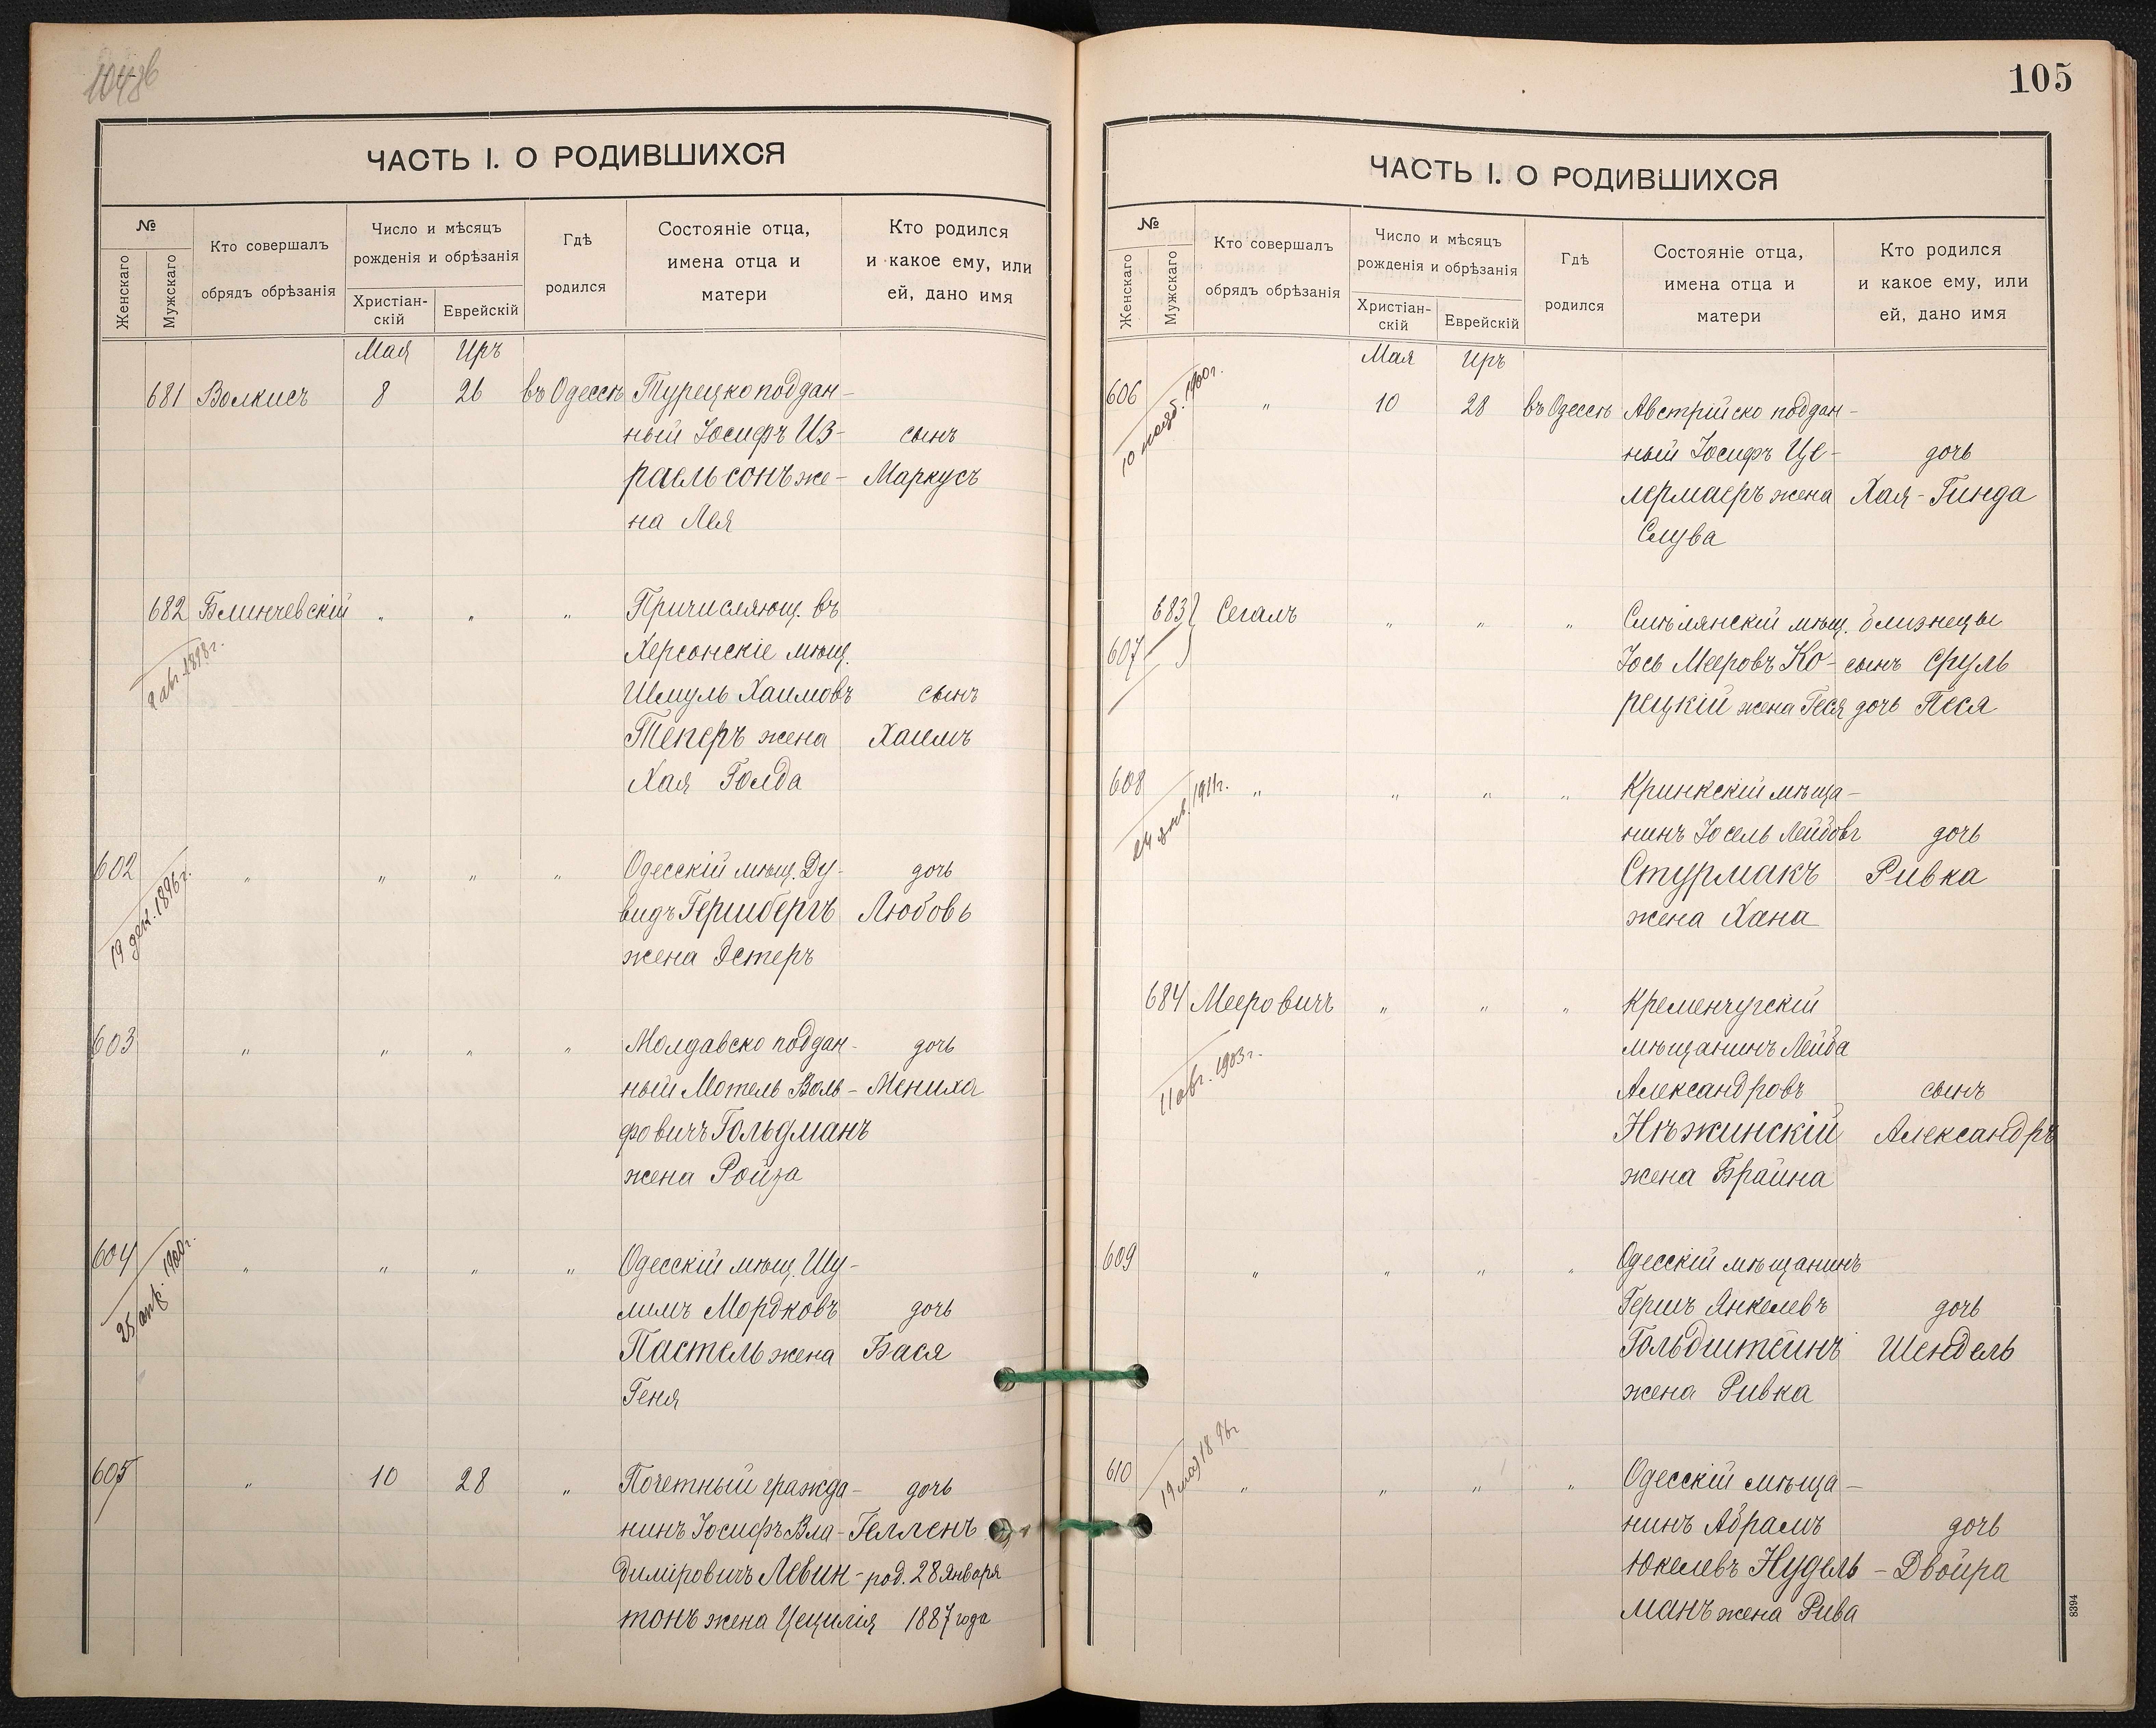 ЧАСТЬ I. О РОДИВШИХСЯ
№
Женскаго
Мужскаго
Кто совершалъ
обрядъ обрѣзанія
Число и мѣсяцъ
рожденія и обрѣзанія
Христіан-
скій
Еврейскій
Гдѣ
родился
Состояніе отца,
имена отца и
матери
Кто родился
и какое ему, или
ей, дано имя
Мая Иръ
681 Волкисъ 8 26 въ Одессѣ Турецкоподдан-
ный Іосифъ Из- сынъ
раельсонъ же- Маркусъ
на Лея
682 Блинчевскій " " " Причисляющ. въ
Херсонскіе мѣщ.
авг. 1898г.
Шмуль Хаимовъ сынъ
Теперъ жена Хаимъ
Хая Голда
602 " " " " Одесскій мѣщ. Ду- дочь
19 дек. 1896г.
видъ Гершбергъ Любовь
жена Эстеръ
603 " " " " Молдавско поддан- дочь
ный Мотель Воль- Мениха
фовичъ Гольдманъ
жена Ройза
604 " " " " Одесскій мѣщ. Шу-
25 1900г.
лимъ Мордковъ дочь
Пастель жена Бася
Геня
605 " 10 28 " Почетный гражда- дочь
нинъ Іосифъ Вла- Гелленъ
диміровичъ Левин- род. 28 Января
тонъ жена Цецилія 1887 года
105
ЧАСТЬ I. О РОДИВШИХСЯ
№
Женскаго
Мужскаго
Кто совершалъ
обрядъ обрѣзанія
Число и мѣсяцъ
рожденія и обрѣзанія
Христіан-
скій
Еврейскій
Гдѣ
родился
Состояніе отца,
имена отца и
матери
Кто родился
и какое ему, или
ей, дано имя
Мая Иръ
606 " 10 28 въ Одессѣ Австрійско поддан-
10 нояб. 1900г.
ный Іосифъ Це- дочь
лермаеръ жена Хая-Гинда
Слува
683 Сегалъ " " " Смѣлянскій мѣщ. близнецы
607 Іось Мееровъ Ко- сынъ Сруль
рецкій жена Геся дочь Песя
608 " " " " Кринкскій мѣща-
24 янв. 1911г.
нинъ Іосель Лейбовъ дочь
Стурмакъ Ривка
жена Хана
684 Мееровичъ " " " Кременчугскій
мѣщанинъ Лейба
11 авг. 1903г.
Александровъ сынъ
Нѣжинскій Александръ
жена Брайна
609 " " " " Одесскій мѣщанинъ
Гершъ Янкелевъ дочь
Гольдштейнъ Шендель
жена Ривка
610 " " " " Одесскій мѣща-
19 мая 1896г
нинъ Абрамъ дочь
Юкелевъ Нудель- Двойра
манъ жена Рива
8394